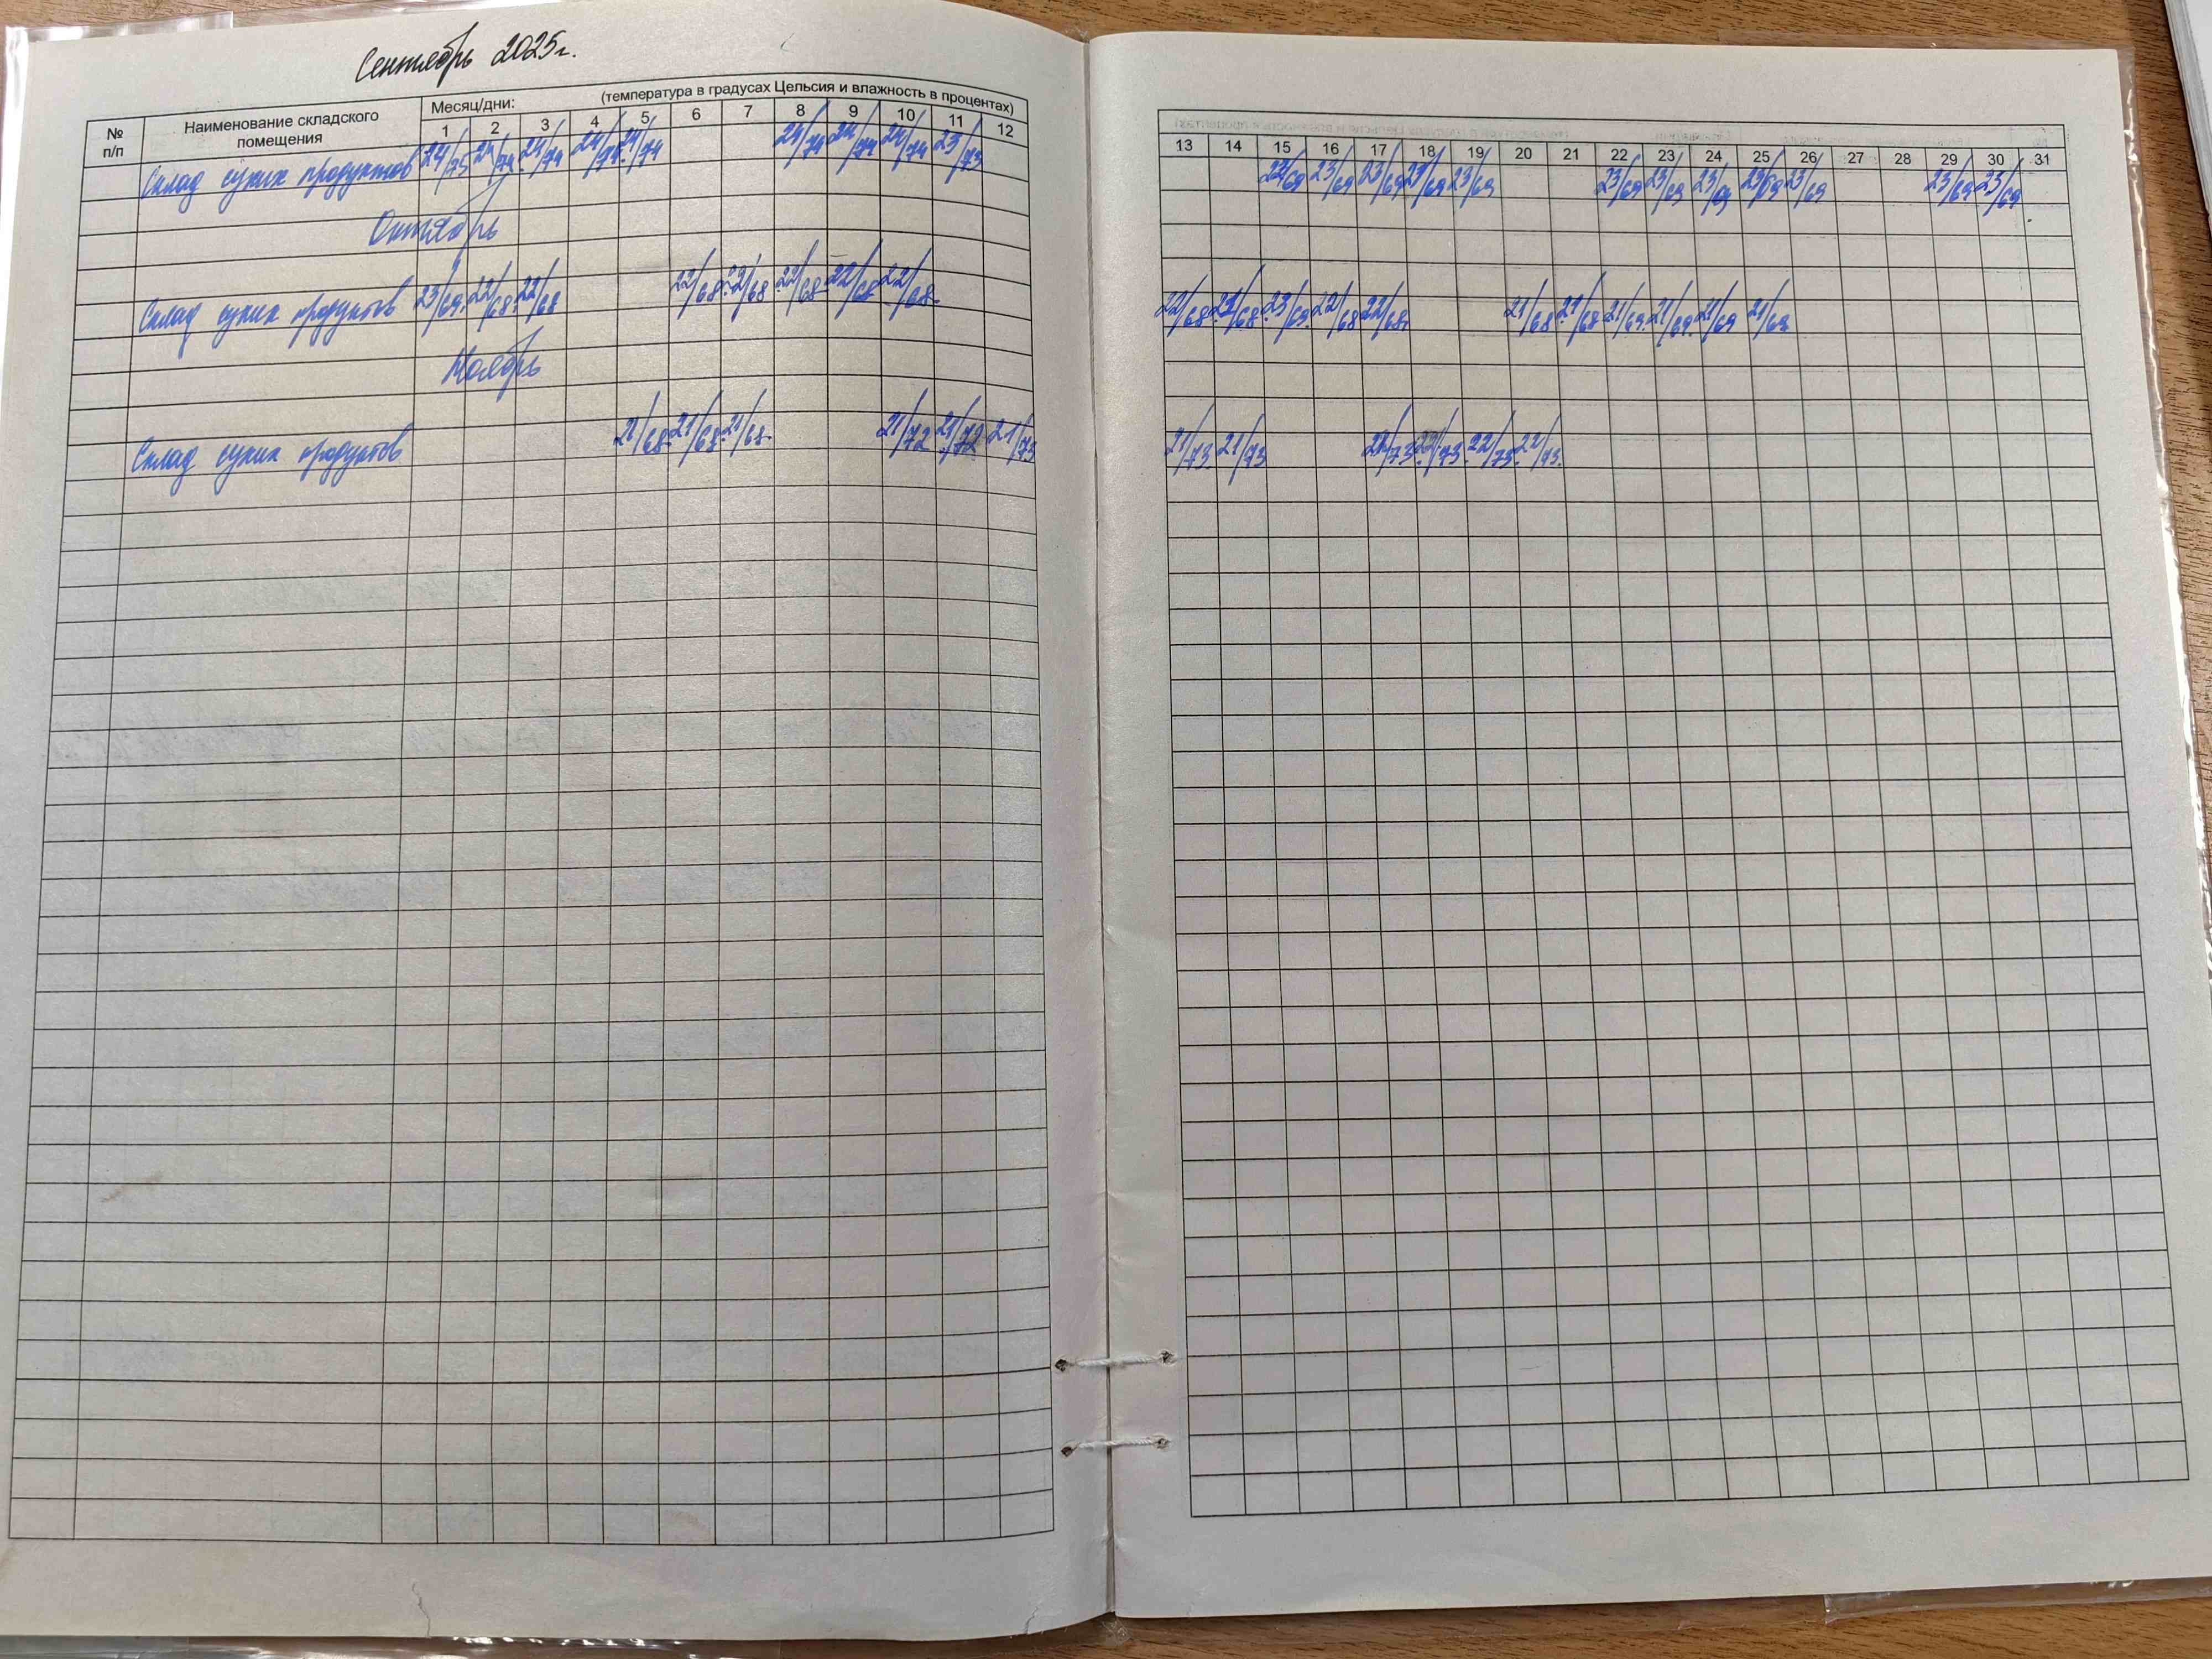 Сентябрь 2025г.
№ п/п Наименование складского помещения Месяц/дни: (температура в градусах Цельсия и влажность в процентах)
1 2 3 4 5 6 7 8 9 10 11 12 13 14 15 16 17 18 19 20 21 22 23 24 25 26 27 28 29 30 31
Склад сухих продуктов 24/75 24/74 24/74 24/74 24/74 24/74 24/74 24/74 23/73 22/69 23/69 23/69 23/69 23/69 23/69 23/69 23/69 23/69 23/69 23/69 23/69
Октябрь
Склад сухих продуктов 23/69 22/68 22/68 22/68 22/68 22/68 22/68 22/68 22/68 22/68 23/69 22/68 22/68 21/68 21/68 21/69 21/69 21/69 21/69
Ноябрь
Склад сухих продуктов 21/68 21/68 21/68 21/72 21/72 21/73 21/73 21/73 22/73 22/73 22/73 22/73